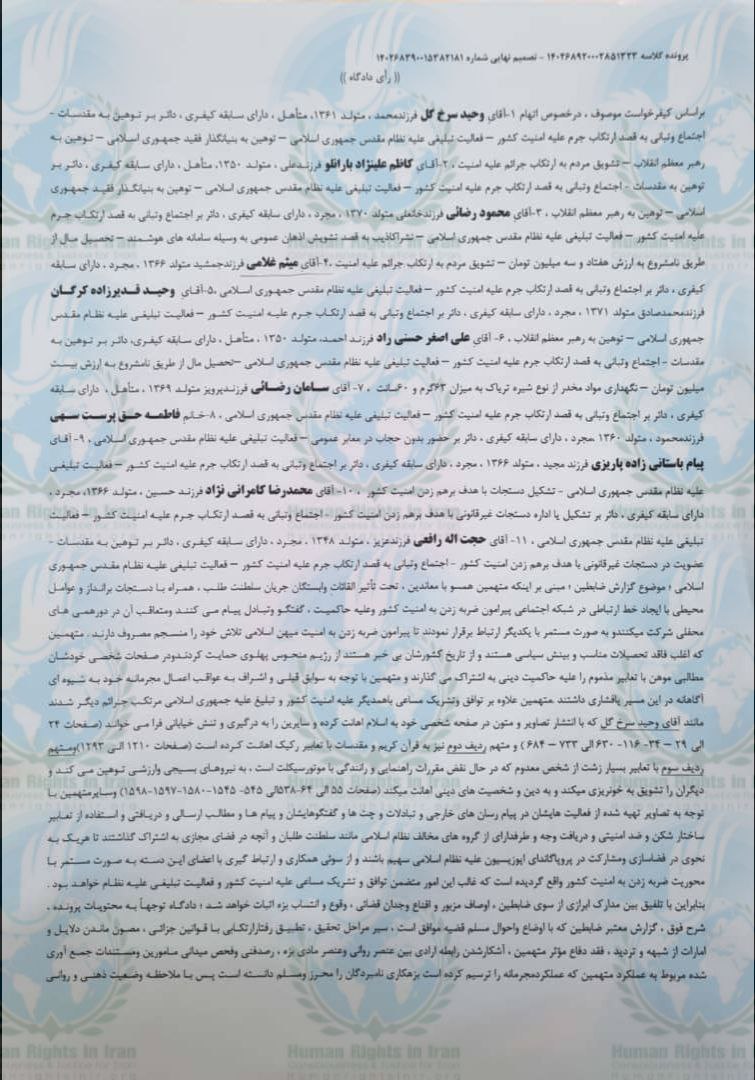 پرونده کلاسه ۱۴۰۲۶۸۹۲۰۰۰۲۸۵۱۳۲۳ - تصمیم نهایی شماره ۱۴۰۲۶۸۳۹۰۰۱۵۳۸۲۱۸۱
(( رأی دادگاه ))
براساس کیفرخواست موصوف ، درخصوص اتهام ۱-آقای وحید سرخ گل فرزندمحمد ، متولد ۱۳۶۱، متأهل ، دارای سابقه کیفری ، دائر بر توهین به مقدسات -
اجتماع وتبانی به قصد ارتکاب جرم علیه امنیت کشور – فعالیت تبلیغی علیه نظام مقدس جمهوری اسلامی – توهین به بنیانگذار فقید جمهوری اسلامی – توهین به
رهبر معظم انقلاب – تشویق مردم به ارتکاب جرائم علیه امنیت ، ۲-آقای کاظم علینژاد بارانلو فرزندعلی ، متولد ۱۳۵۰، متأهل ، دارای سابقه کیفری ، دائر بر
توهین به مقدسات - اجتماع وتبانی به قصد ارتکاب جرم علیه امنیت کشور – فعالیت تبلیغی علیه نظام مقدس جمهوری اسلامی – توهین به بنیانگذار فقید جمهوری
اسلامی – توهین به رهبر معظم انقلاب ، ۳-آقای محمود رضائی فرزندخانعلی متولد ۱۳۷۰ ، مجرد ، دارای سابقه کیفری ، دائر بر اجتماع وتبانی به قصد ارتکاب جرم
علیه امنیت کشور – فعالیت تبلیغی علیه نظام مقدس جمهوری اسلامی – نشراکاذیب به قصد تشویش اذهان عمومی به وسیله سامانه های هوشمند – تحصیل مال از
طریق نامشروع به ارزش هفتاد و سه میلیون تومان – تشویق مردم به ارتکاب جرائم علیه امنیت ،۴-آقای میثم غلامی فرزندجمشید متولد ۱۳۶۶ ، مجرد ، دارای سابقه
کیفری ، دائر بر اجتماع وتبانی به قصد ارتکاب جرم علیه امنیت کشور – فعالیت تبلیغی علیه نظام مقدس جمهوری اسلامی ،۵-آقای وحید قدیرزاده کرگان
فرزندمحمدصادق متولد ۱۳۷۱ ، مجرد ، دارای سابقه کیفری ، دائر بر اجتماع وتبانی به قصد ارتکاب جرم علیه امنیت کشور – فعالیت تبلیغی علیه نظام مقدس
جمهوری اسلامی – توهین به رهبر معظم انقلاب ، ۶- آقای علی اصغر حسنی راد فرزند احمد، متولد ۱۳۵۰ ، متأهل ، دارای سابقه کیفری، دائر بر توهین به
مقدسات - اجتماع وتبانی به قصد ارتکاب جرم علیه امنیت کشور – فعالیت تبلیغی علیه نظام مقدس جمهوری اسلامی –تحصیل مال از طریق نامشروع به ارزش بیست
میلیون تومان – نگهداری مواد مخدر از نوع شیره تریاک به میزان ۶۳گرم و ۶۰سانت ، ۷- آقای سامان رضائی فرزندپرویز متولد ۱۳۶۹ ، متأهل ، دارای سابقه
کیفری ، دائر بر اجتماع وتبانی به قصد ارتکاب جرم علیه امنیت کشور – فعالیت تبلیغی علیه نظام مقدس جمهوری اسلامی ، ۸-خانم فاطمه حق پرست سهی
فرزندمحمود ، متولد ۱۳۶۰ ،مجرد ، دارای سابقه کیفری ، دائر بر حضور بدون حجاب در معابر عمومی – فعالیت تبلیغی علیه نظام مقدس جمهوری اسلامی ، ۹- آقای
پیام باستانی زاده پاریزی فرزند مجید ، متولد ۱۳۶۶ ، مجرد ، دارای سابقه کیفری ، دائر بر اجتماع وتبانی به قصد ارتکاب جرم علیه امنیت کشور – فعالیت تبلیغی
علیه نظام مقدس جمهوری اسلامی – تشکیل دستجات با هدف برهم زدن امنیت کشور ، ۱۰- آقای محمدرضا کامرانی نژاد فرزند حسین ، متولد ۱۳۶۶، مجرد ،
دارای سابقه کیفری ، دائر بر تشکیل یا اداره دستجات غیرقانونی با هدف برهم زدن امنیت کشور - اجتماع وتبانی به قصد ارتکاب جرم علیه امنیت کشور – فعالیت
تبلیغی علیه نظام مقدس جمهوری اسلامی ، ۱۱- آقای حجت اله رافعی فرزندعزیز ، متولد ۱۳۴۸ ، مجرد ، دارای سابقه کیفری ، دائر بر توهین به مقدسات -
عضویت در دستجات غیرقانونی با هدف برهم زدن امنیت کشور - اجتماع وتبانی به قصد ارتکاب جرم علیه امنیت کشور – فعالیت تبلیغی علیه نظام مقدس جمهوری
اسلامی ؛ موضوع گزارش ضابطین ؛ مبنی بر اینکه متهمین همسو با معاندین ، تحت تأثیر القائات وابستگان جریان سلطنت طلب ، همراه با دستجات برانداز و عوامل
محیطی با ایجاد خط ارتباطی در شبکه اجتماعی پیرامون ضربه زدن به امنیت کشور وعلیه حاکمیت ، گفتگو وتبادل پیام می کنند ومتعاقب آن در دورهمی های
محفلی شرکت میکنندو به صورت مستمر با یکدیگر ارتباط برقرار نمودند تا پیرامون ضربه زدن به امنیت میهن اسلامی تلاش خود را منسجم مصروف دارند . متهمین
که اغلب فاقد تحصیلات مناسب و بینش سیاسی هستند و از تاریخ کشورشان بی خبر هستند از رژیم منحوس پهلوی حمایت کردندودر صفحات شخصی خودشان
مطالبی موهن با تعابیر مذموم را علیه حاکمیت دینی به اشتراک می گذارند و متهمین با توجه به سوابق قبلی و اشراف به عواقب اعمال مجرمانه خود به شیوه ای
آگاهانه در این مسیر پافشاری داشتند .متهمین علاوه بر توافق وتشریک مساعی باهمدیگر علیه امنیت کشور و تبلیغ علیه جمهوری اسلامی مرتکب جرائم دیگر شدند
مانند آقای وحید سرخ گل که با انتشار تصاویر و متون در صفحه شخصی خود به اسلام اهانت کرده و سایرین را به درگیری و تنش خیابانی فرا می خواند (صفحات ۲۴
الی ۲۹ – ۳۴- ۱۱۶- ۶۳۰ الی ۷۳۳ - ۶۸۴) و متهم ردیف دوم نیز به قرآن کریم و مقدسات با تعابیر رکیک اهانت کرده است (صفحات ۱۲۱۰ الی ۱۲۹۳)ومتهم
ردیف سوم با تعابیر بسیار زشت از شخص معدوم که در حال نقض مقررات راهنمایی و رانندگی با موتورسیکلت است ، به نیروهای بسیجی وارزشی توهین می کند و
دیگران را تشویق به خونریزی میکند و به دین و شخصیت های دینی اهانت میکند (صفحات ۵۵ الی ۶۴-۵۳۸الی ۵۴۵- ۱۵۴۵-۱۵۸۰-۱۵۹۷-۱۵۹۸) وسایرمتهمین با
توجه به تصاویر تهیه شده از فعالیت هایشان در پیام رسان های خارجی و تبادلات و چت ها و گفتگوهایشان و پیام ها و مطالب ارسالی و دریافتی و استفاده از تعابیر
ساختار شکن و ضد امنیتی و دریافت وجه و طرفدارای از گروه های مخالف نظام اسلامی مانند سلطنت طلبان و آنچه در فضای مجازی به اشتراک گذاشتند تا هریک به
نحوی در فضاسازی ومشارکت در پروپاگاندای اپوزیسیون علیه نظام اسلامی سهیم باشند و از سوئی همکاری و ارتباط گیری با اعضای این دسته به صورت مستمر با
محوریت ضربه زدن به امنیت کشور واقع گردیده است که غالب این امور متضمن توافق و تشریک مساعی علیه امنیت کشور و فعالیت تبلیغی علیه نظام خواهد بود .
بنابراین با تلفیق بین مدارک ابرازی از سوی ضابطین ، اوصاف مزبور و اقناع وجدان قضائی ، وقوع و انتساب بزه اثبات خواهد شد ؛ دادگاه توجهاً به محتویات پرونده ،
شرح فوق ، گزارش معتبر ضابطین که با اوضاع واحوال مسلم قضیه موافق است ، سیر مراحل تحقیق ، تطبیق رفتارارتکابی با قوانین جزائی ، مصون ماندن دلایل و
امارات از شبهه و تردید ، فقد دفاع مؤثر متهمین ، آشکارشدن رابطه ارادی بین عنصر روانی وعنصر مادی بزه ، رصدفنی وفحص میدانی مامورین ومستندات جمع آوری
شده مربوط به عملکرد متهمین که عملکردمجرمانه را ترسیم کرده است بزهکاری نامبردگان را محرز ومسلم دانسته است پس با ملاحظه وضعیت ذهنی و روانی
Human Rights in Iran